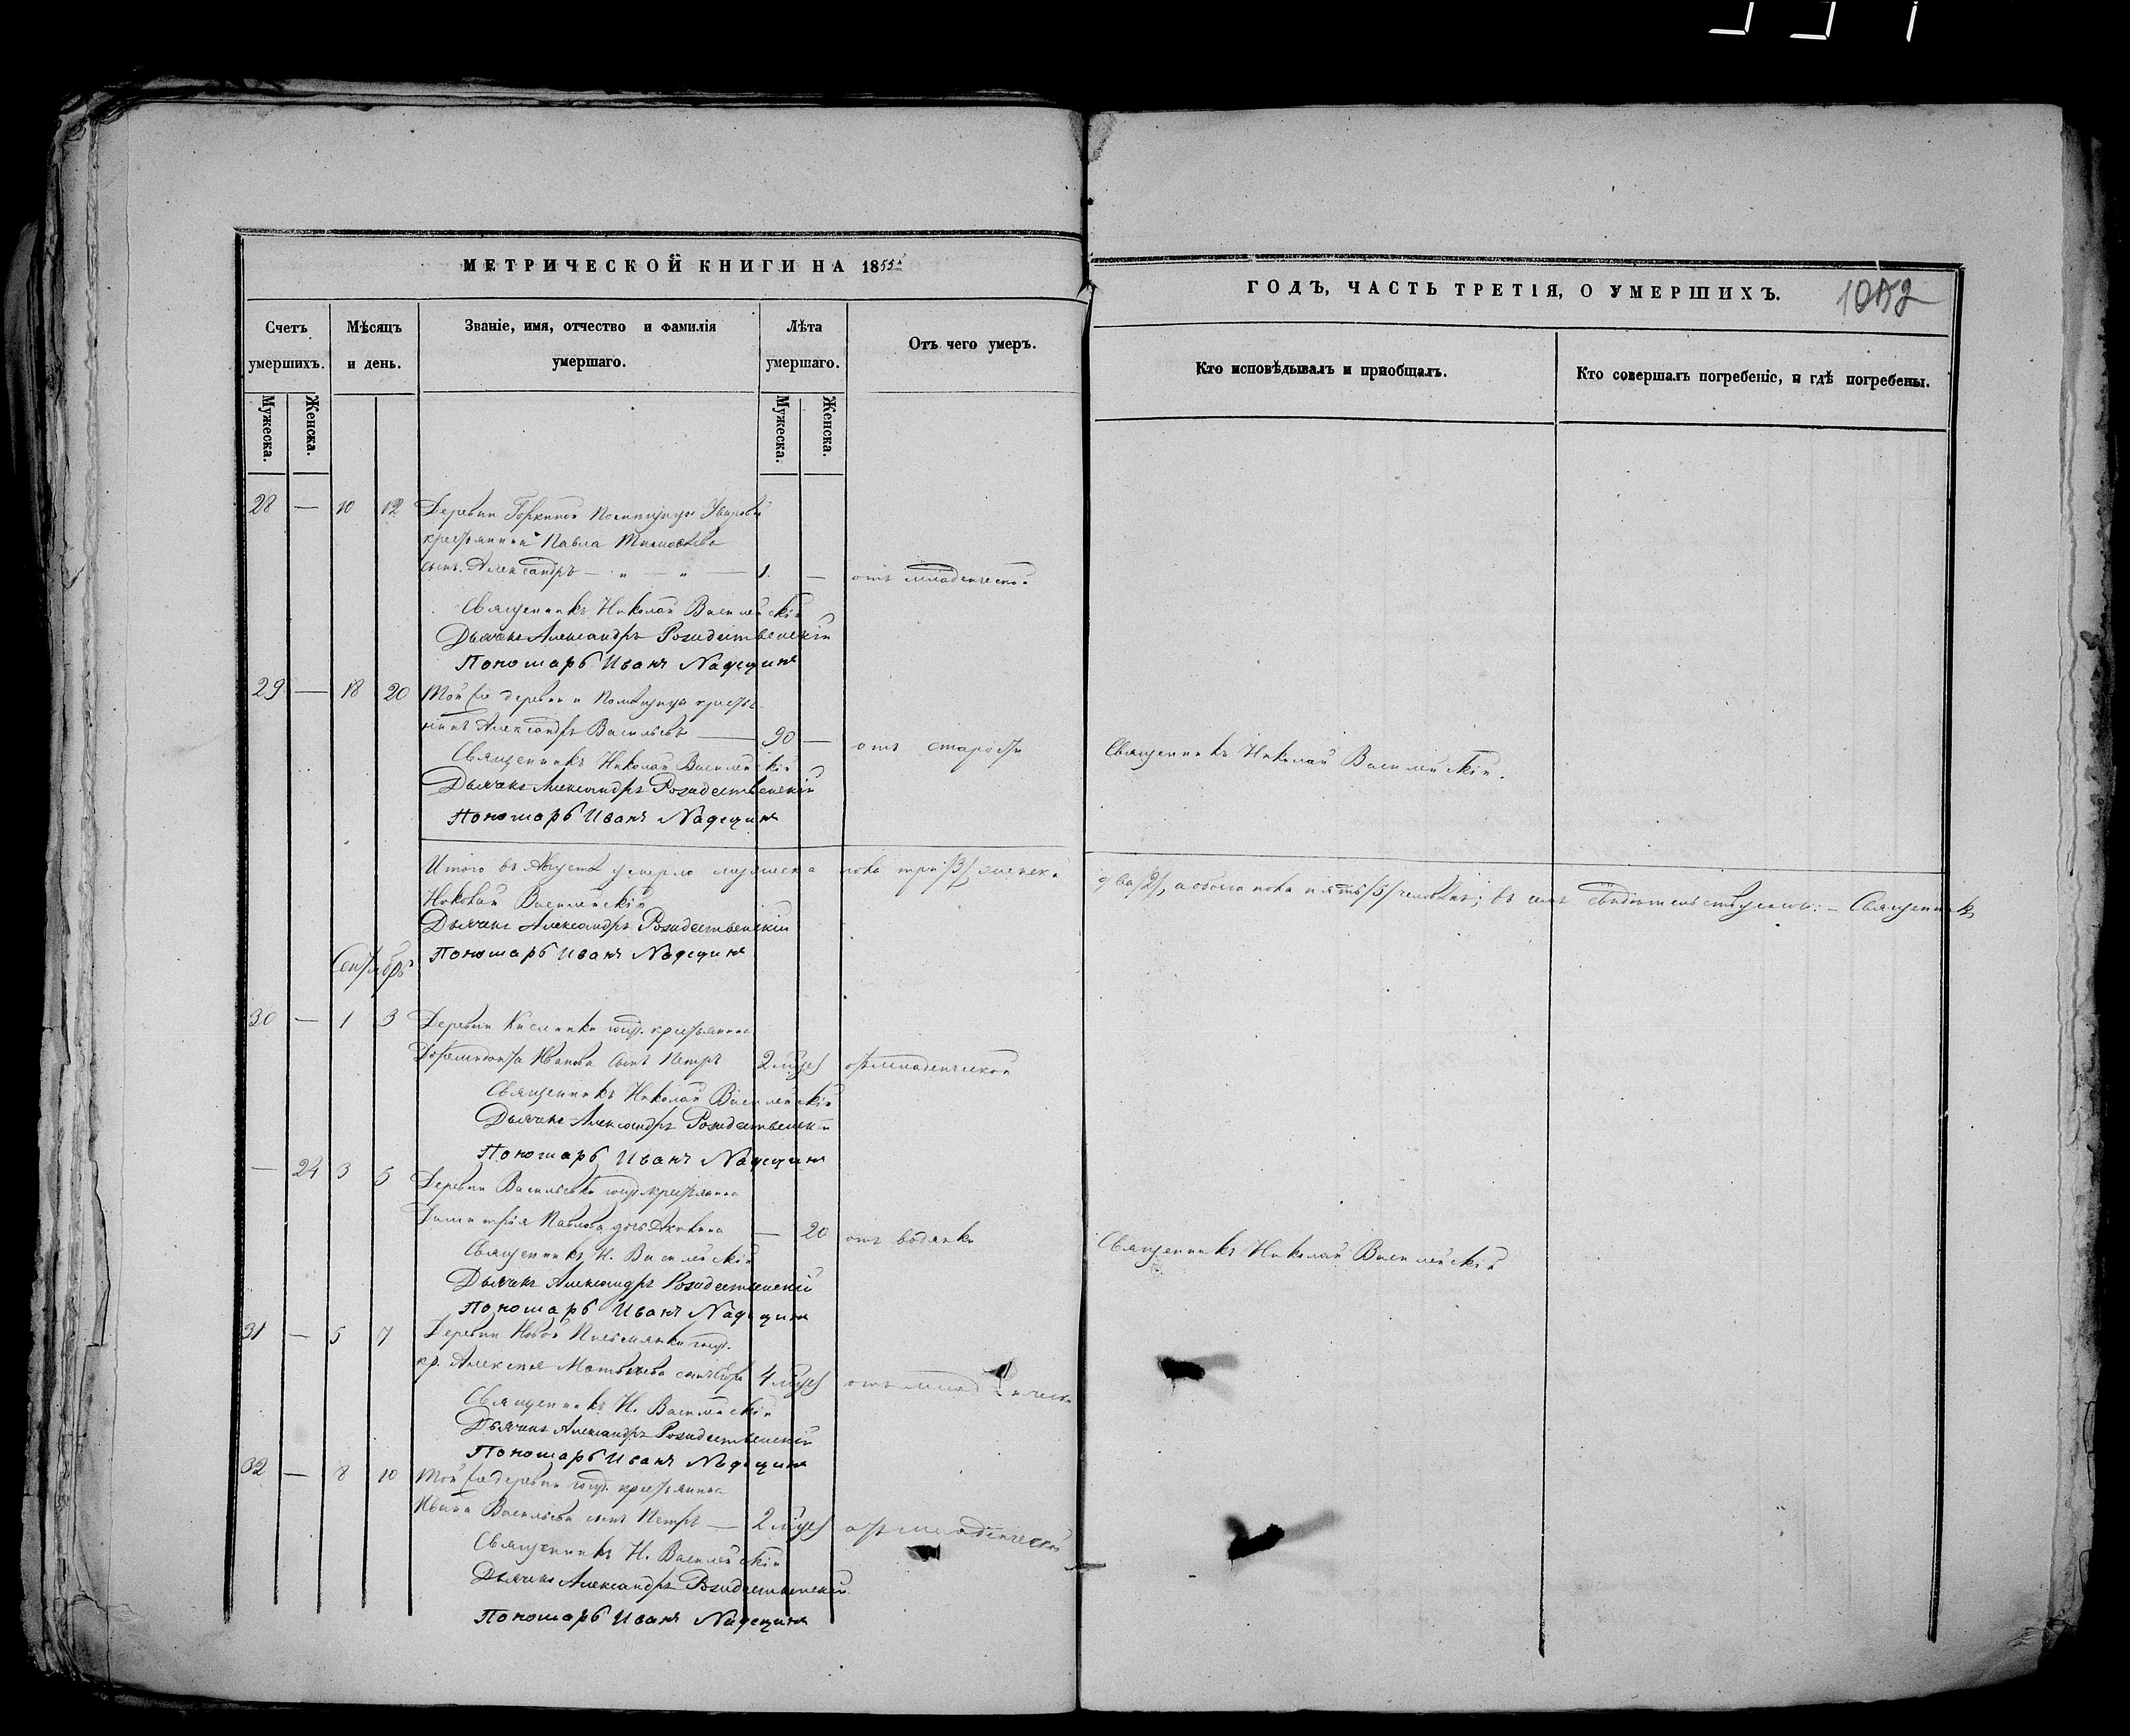 МЕТРИЧЕСКОЙ КНИГИ НА 1855й
ГОДЪ, ЧАСТЬ ТРЕТІЯ, О УМЕРШИХЪ.
Счетъ умершихъ.
Мѣсяцъ и день.
Званіе, имя, отчество и фамилія умершаго.
Лѣта умершаго.
Отъ чего умеръ.
Кто исповѣдывалъ и пріобщалъ.
Кто совершалъ погребеніе, и гдѣ погребены.
Мужеска.
Женска.
Мужеска.
Женска.
28 — 10 12 Деревни Помѣщицы
крестьянина Павла
сынъ Александръ — " — " — 1. — отъ младенческой
Священникъ Николай Василейскій
Дьячекъ Александръ Рождественскій
Пономарь Иванъ Надеждинъ
29 — 18 20 Той же деревни Помѣщицы крестья
нинъ Александръ Васильевъ — 90 — отъ старости Священникъ Николай Василейскій.
Священникъ Николай Василейскій
Дьячекъ Александръ Рождественскій
Пономарь Иванъ Надеждинъ
Итого въ Августѣ умерло мужеска пола три /3/, женска два /2/, а обоего пола пять /5/ человѣкъ; въ семъ свидѣтельствуемъ: — Священникъ
Николай Василейскій
Дьячекъ Александръ Рождественскій
Пономарь Иванъ Надеждинъ
Сентябрь
30 — 1 3 Деревни Кислинки госуд. крестьянина
Иванова сынъ Петръ 2 мѣсец отъ младенческой
Священникъ Николай Василейскій
Дьячекъ Александръ Рождественскій
Пономарь Иванъ Надеждинъ
— 24 3 5 Деревни Васильевки госуд. крестьянина
Димитрія Павлова дочь — 20 отъ водянки Священникъ Николай Василейскій
Священникъ Н. Василейскій
Дьячекъ Александръ Рождественскій
Пономарь Иванъ Надеждинъ
31 — 5 7 Деревни Новой Письмянки госуд.
кр. Алексѣя Матвѣева сынъ 4 мѣсец отъ младенческой
Священникъ Н. Василейскій
Дьячекъ Александръ Рождественскій
Пономарь Иванъ Надеждинъ
32 — 8 10 Той же деревни госуд. крестьянина
Ивана Васильева сынъ Петръ — 2 мѣсец отъ младенческой
Священникъ Н. Василейскій
Дьячекъ Александръ Рождественскій
Пономарь Иванъ Надеждинъ